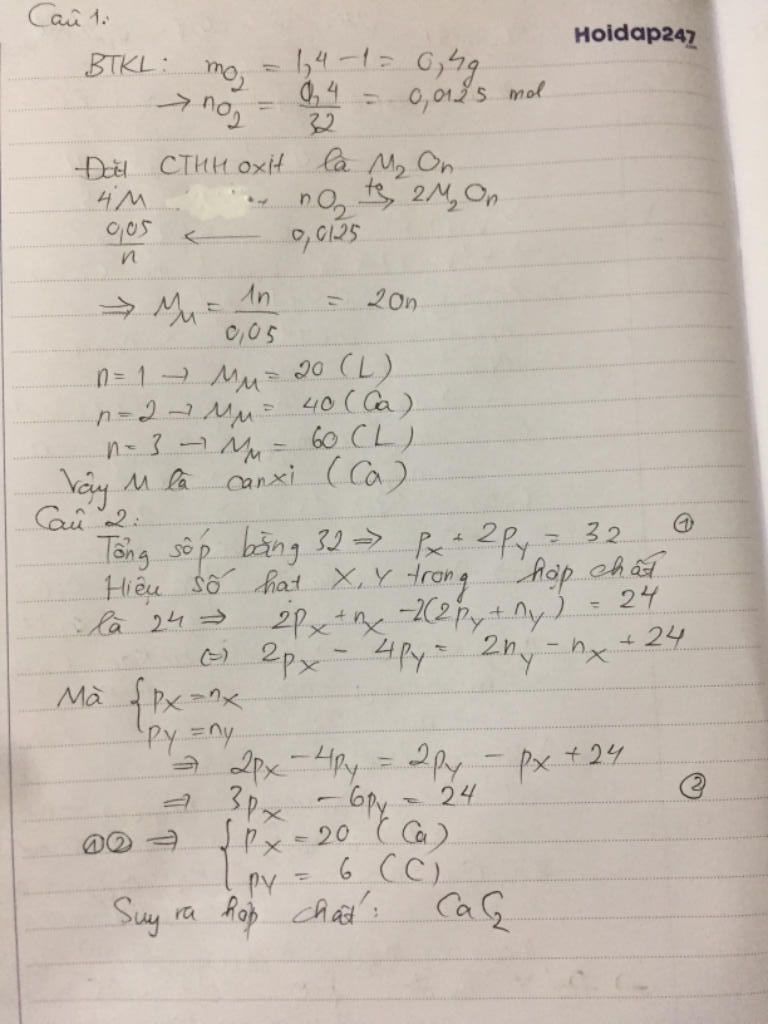 Câu 1:
Hoidap247
.com
BTKL: mO₂ = 1,4 − 1 = 0,4g
→ nO₂ = 0,4/32 = 0,0125 mol
Đặt CTHH oxit là M₂On
4M nO₂ tº→ 2M₂On
0,05/n ← 0,0125
⇒ M_M = 1n/0,05 = 20n
n = 1 → M_M = 20 (L)
n = 2 → M_M = 40 (Ca)
n = 3 → M_M = 60 (L)
Vậy M là canxi (Ca)
Câu 2:
Tổng số p bằng 32 ⇒ pX + 2pY = 32 ①
Hiệu số hạt X, Y trong hợp chất
là 24 ⇒ 2pX + nX − 2(2pY + nY) = 24
(=) 2pX − 4pY = 2nY − nX + 24
Mà { pX = nX
pY = nY
⇒ 2pX − 4pY = 2pY − pX + 24
⇒ 3pX − 6pY = 24 ②
①② ⇒ { pX = 20 (Ca)
pY = 6 (C)
Suy ra hợp chất: CaC₂